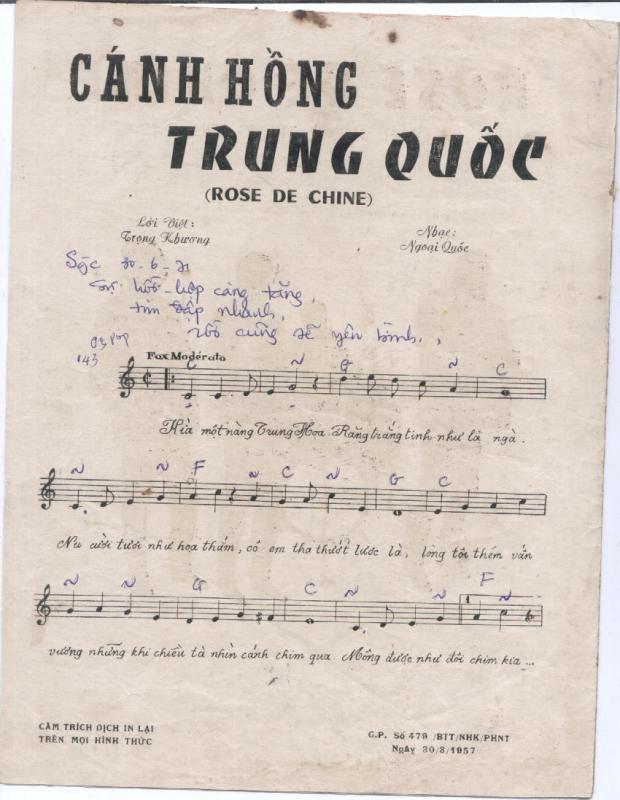 CÁNH HỒNG
TRUNG QUỐC
(ROSE DE CHINE)
Lời Việt:
Trọng Khương
Nhạc:
Ngoại Quốc
30-6-71
Sự hồi hộp càng tăng,
tim đập nhanh,
rồi cũng sẽ yên bình.
143
Fox Modérato
C G C
Kìa một nàng Trung Hoa. Răng trắng tinh như là ngà.
F C G C
Nụ cười tươi như hoa thắm, cô em tha thướt lước là, lòng tôi thêm vấn
G C F
1
vương những khi chiều tà nhìn cánh chim qua. Mộng được như đôi chim kia ...
CẤM TRÍCH DỊCH IN LẠI
TRÊN MỌI HÌNH THỨC
G.P. Số 479 /BTT/NHK/PHNT
Ngày 30/8/1957